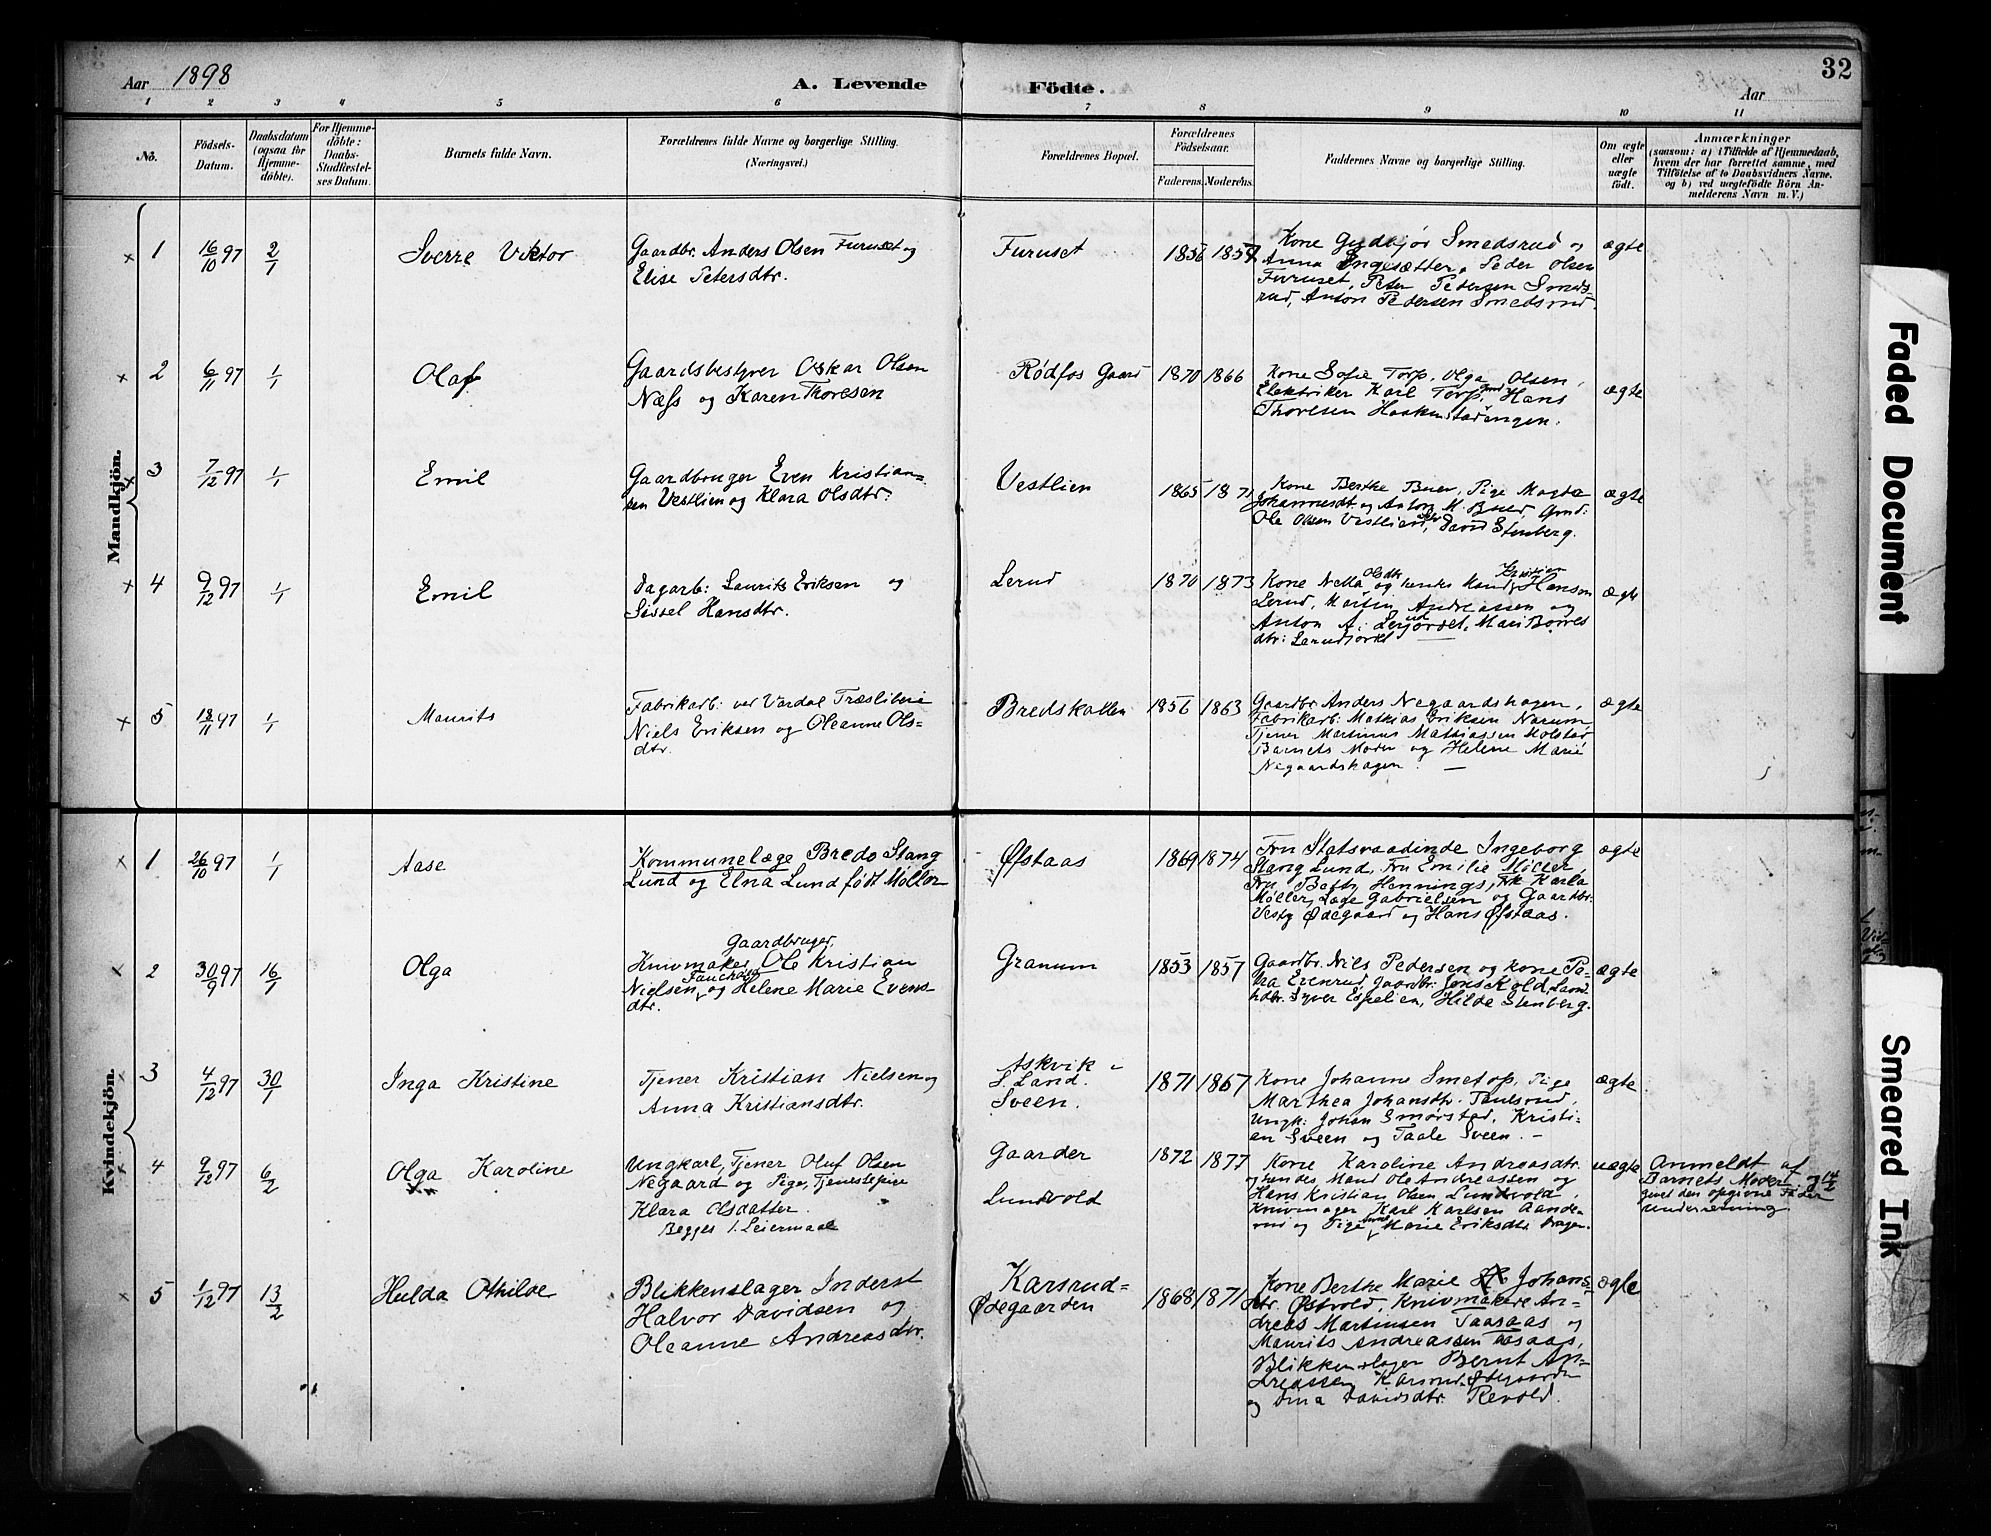 Aar 1898
A. Levende Födte.
32
Aar
1 2 3 4 5 6 7 8 9 10 11
No.
Födsels-Datum.
Daabsdatum (ogsaa for Hjemme-döbte).
For Hjemme-döbte: Daabs-Stadfestel-ses Datum.
Barnets fulde Navn.
Forældrenes fulde Navne og borgerlige Stilling.
(Næringsvei.)
Forældrenes Bopæl.
Forældrenes Födselsaar.
Faderens. Moderens.
Faddernes Navne og borgerlige Stilling.
Om ægte eller uægte födt.
Anmærkninger
(saasom: a) i Tilfælde af Hjemmedaab,
hvem der har forrettet samme, med
Tilföielse af to Daabsvidners Navne.
og b) ved uægtefödte Börn An-
melderens Navn m. V.)
Mandkjön.
1 16/10 97 2/1 Sverre Viktor
Gaardbr. Anders Olsen Furuset og
Elise Petersdtr.
Furuset
1856 1859
Kone Gudbjør Smedsrud og
Anna Engesætter, Peder Olsen
Furuset, Peter Pedersen Smeds-
rud, Anton Pedersen Smedsrud
ægte
2 6/11 97 1/1 Olaf
Gaardsbestyrer Oskar Olsen
Næss og Karen Thoresen
Rødfos Gaard
1870 1866
Kone Sofie Torp, Olga Olsen,
Elektriker Karl Torp, Gmd Hans
Thoresen Haakenstadengen.
ægte
3 7/12 97 1/1 Emil
Gaardbruger Even Kristian-
sen Vestlien og Klara Olsdtr:
Vestlien
1865 1871
Kone Berthe Buer, Pige Magda
Johannesdt og Anton M. Buer Gmd:
Ole Olsen Vestlien, David Stenberg.
ægte
4 9/12 97 1/1 Emil
Dagarb: Laurits Eriksen og
Sissel Hansdtr.
Lerud
1870 1873
Kone Netta Olsdtr og hendes Mand Kristian Hansen
Lerud, Martin Andreassen og
Anton A. Lerudjordet, Mari Børres
dtr: Lerudjordet —
ægte
5 18/11 97 1/1 Maurits
Fabrikarb: ved Vardal Træsliberi
Niels Eriksen og Oleanne Ols-
dtr.
Bredskallen
1856 1863
Gaardbr Anders Negaardshagen,
Fabrikarb: Mathias Eriksen Narum,
Tjener Martinus Mathiassen Molstad
Barnets Moder og Helene Marie
Negaardshagen. —
ægte
Kvindekjön.
1 26/10 97 1/1 Aase
Kommunelæge Bredo Stang
Lund og Elna Lund født Møller
Øfstaas
1869 1874
Fru Statsraadinde Ingeborg
Stang Lund, Fru Emilie Møller,
Fru Bethy Hennings, Frk Karla
Møller, Læge Gabrielsen og Gaardbr:
Vesty Ødegaard og Hans Øfstaas.
ægte
2 30/9 97 16/1 Olga
Gaardbruger,
Knivmaker Ole Kristian
Nielsen og Helene Marie Evens-
dtr.
Granum
1853 1857
Gaardbr. Nils Pedersen og kone Pa-
Erenrud, Gaardbr: Jens Kold, Land-
hdbr. Syver Espelien, Hilde Stenberg.
ægte
3 4/12 97 30/1 Inga Kristine
Tjener Kristian Nielsen og
Anna Kristiansdtr.
Askvik i
S. Land.
Sveen.
1871 1867
Kone Johanne Smetop, Pige
Marthea Johansdtr. Paulsrud,
Ungk: Johan Smørstad, Kristi-
an Sveen og Taale Sveen. —
ægte
4 9/12 97 6/2 Olga Karoline
Ungkarl, Tjener Oluf Olsen
Negaard og Pige, Tjenestepige
Klara Olsdatter
Begges 1. Leiermaal
Gaarder
Lundvold
1872 1877
Kone Karoline Andreasdtr.
og hendes Mand Ole Andreassen og
Hans Kristian Olsen Lundvold,
Knivmager Karl Karlsen Aande-
rud og Pige Marie Eriksdtr Hagen.
uægte
Anmeldt af
Barnets Moder, og 14/2
givet den opgivne Fader
underretning
5 1/12 97 13/2 Hulda Othilde
Blikkenslager Inderst
Halvor Davidsen og
Oleanne Andreasdtr.
Karsrud-
Ødegaarden
1868 1871
Kone Berthe Marie Johans-
dtr. Østvold, Knivmakere An-
dreas Martinsen Taasaas og
Maurits Andreassen Aasaas,
Blikkenslager Bernt An-
dreassen, Karsrud-Ødegaarden
og Dina Davidsdtr. Revold.
ægte
Faded Document
Smeared Ink